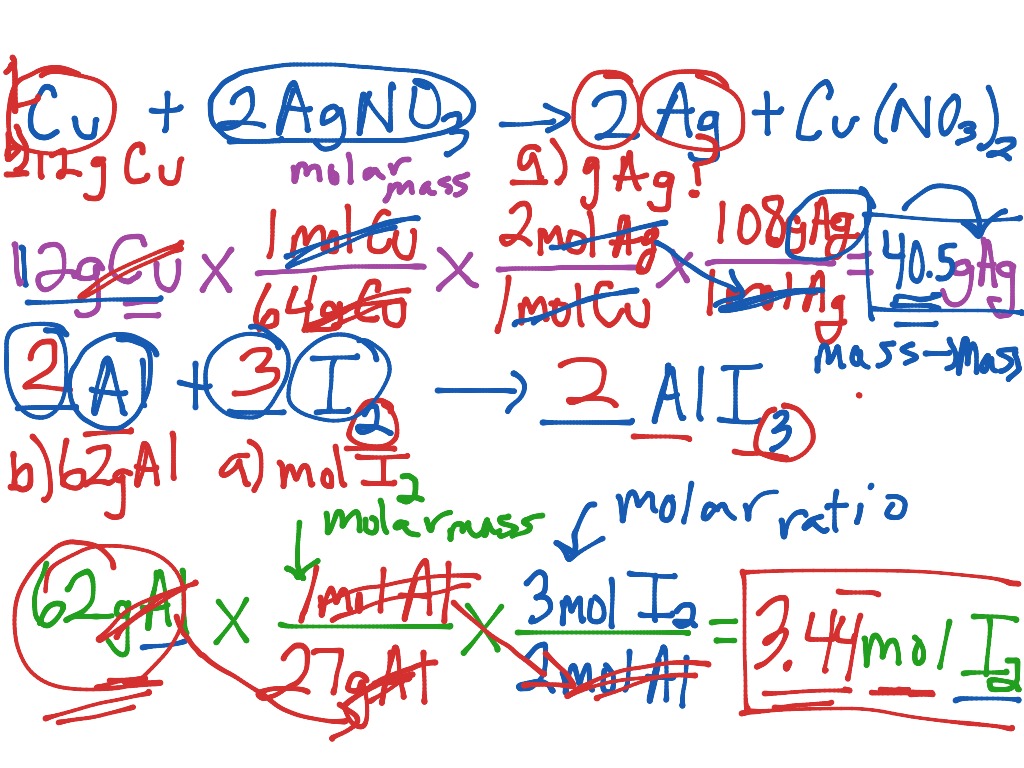 1 Cu + 2 AgNO3 → 2 Ag + Cu(NO3)2
12g Cu a) g Ag?
molar mass
12gCu X 1molCu / 64gCu X 2mol Ag / 1molCu X 108gAg / 1molAg = 40.5gAg
mass→Mass
2 Al + 3 I2 → 2 AlI3
b) 62gAl a) mol I2
molar mass molar ratio
62gAl X 1molAl / 27gAl X 3mol I2 / 2molAl = 3.44 mol I2